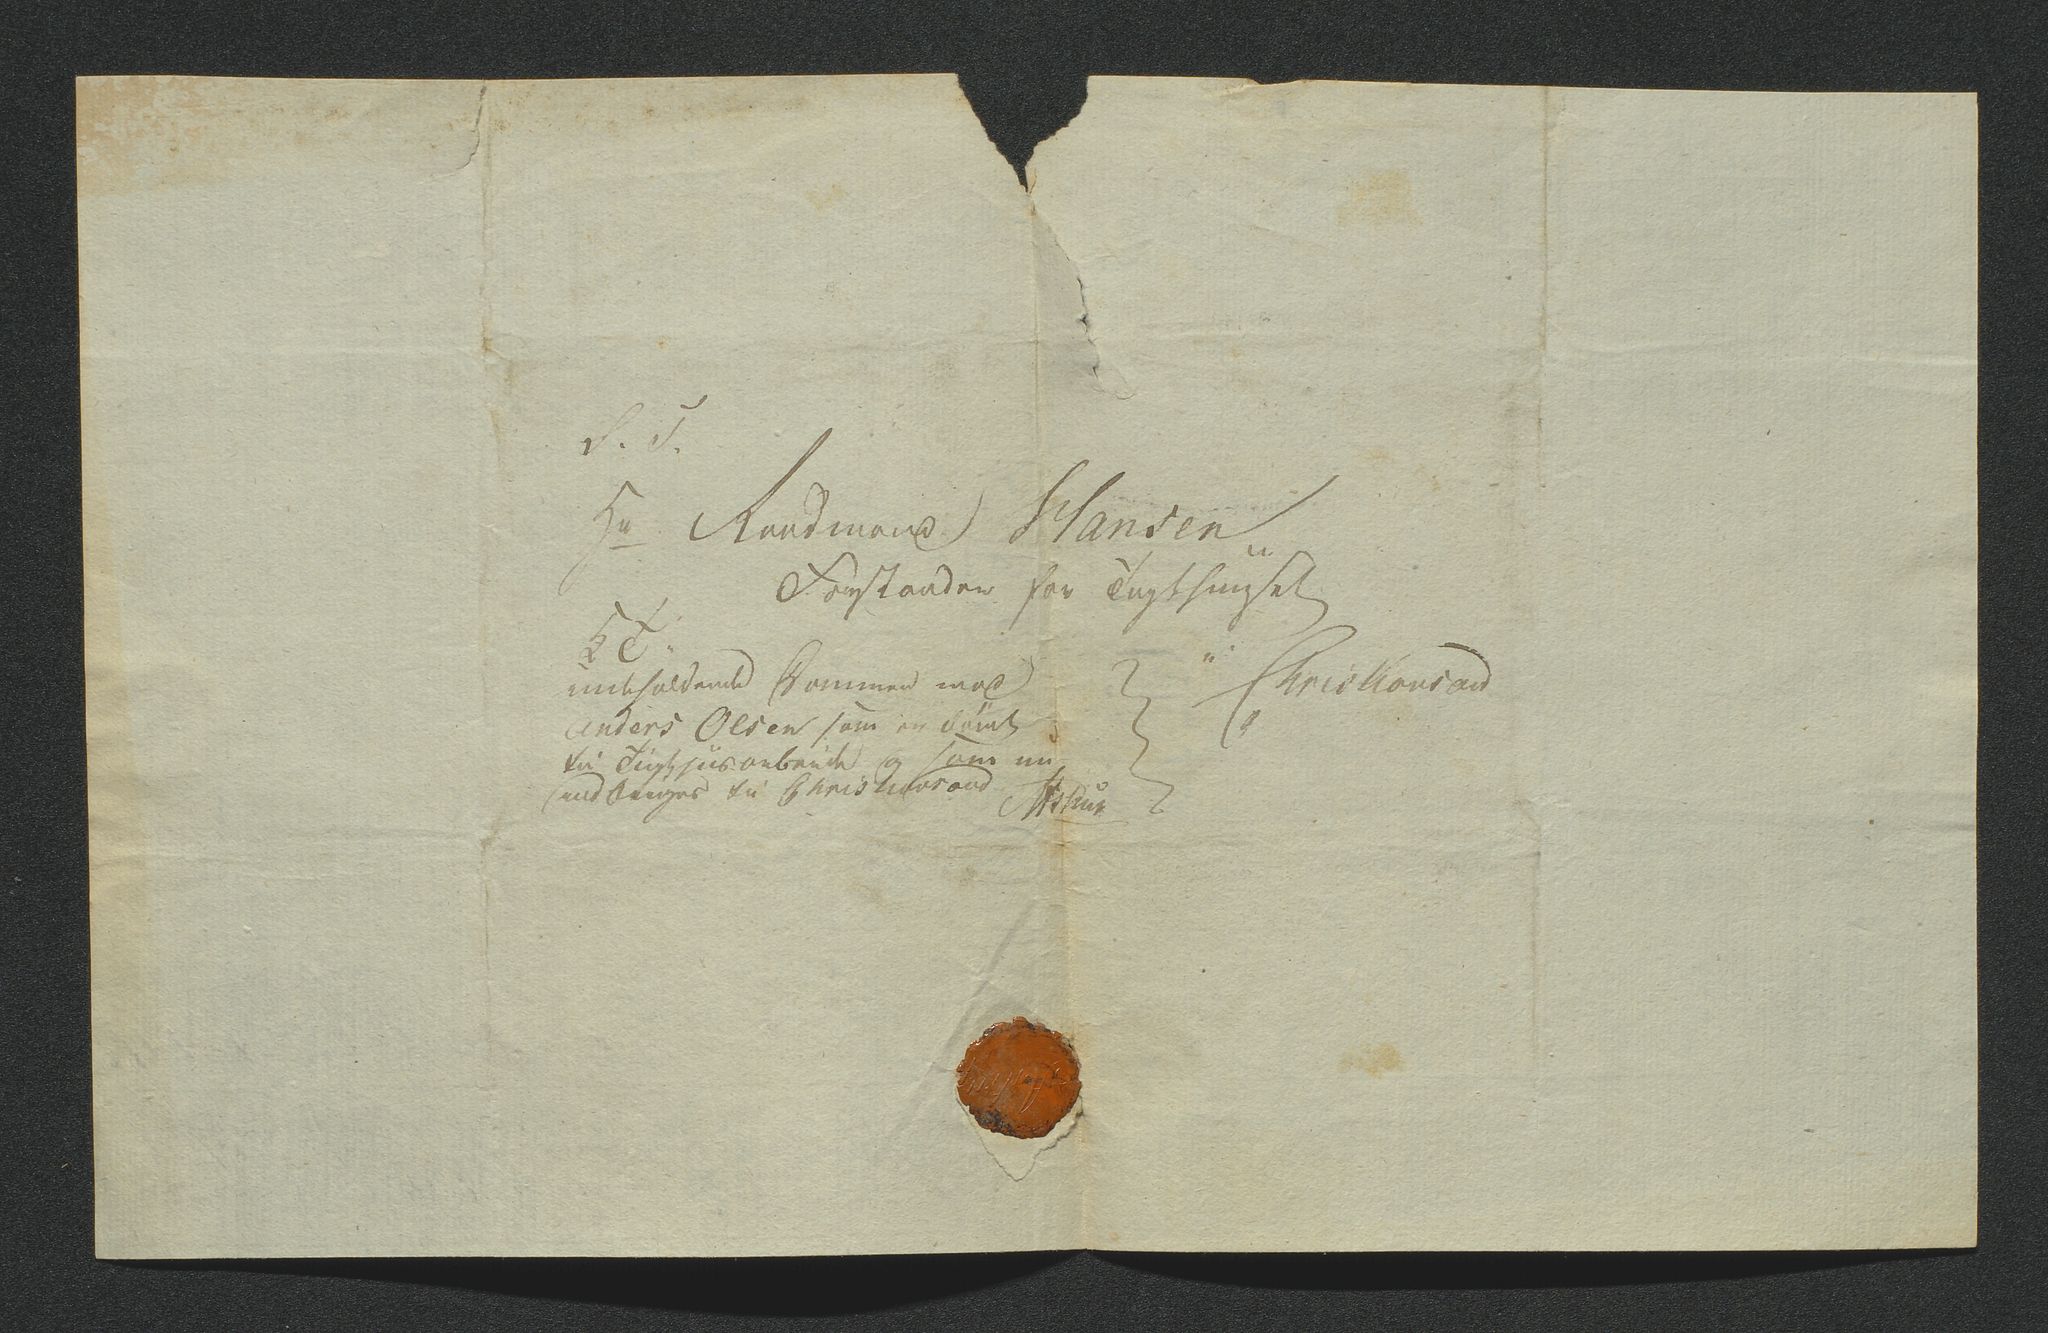 S. T.
Hr Raadmand Hansen
Forstander for Tugthuuset
i Christiansand
K T.
indeholdende Dommen mod
Anders Olsen som er dömt
til Tugthusarbeide og som nu
indbringes til Christiansand